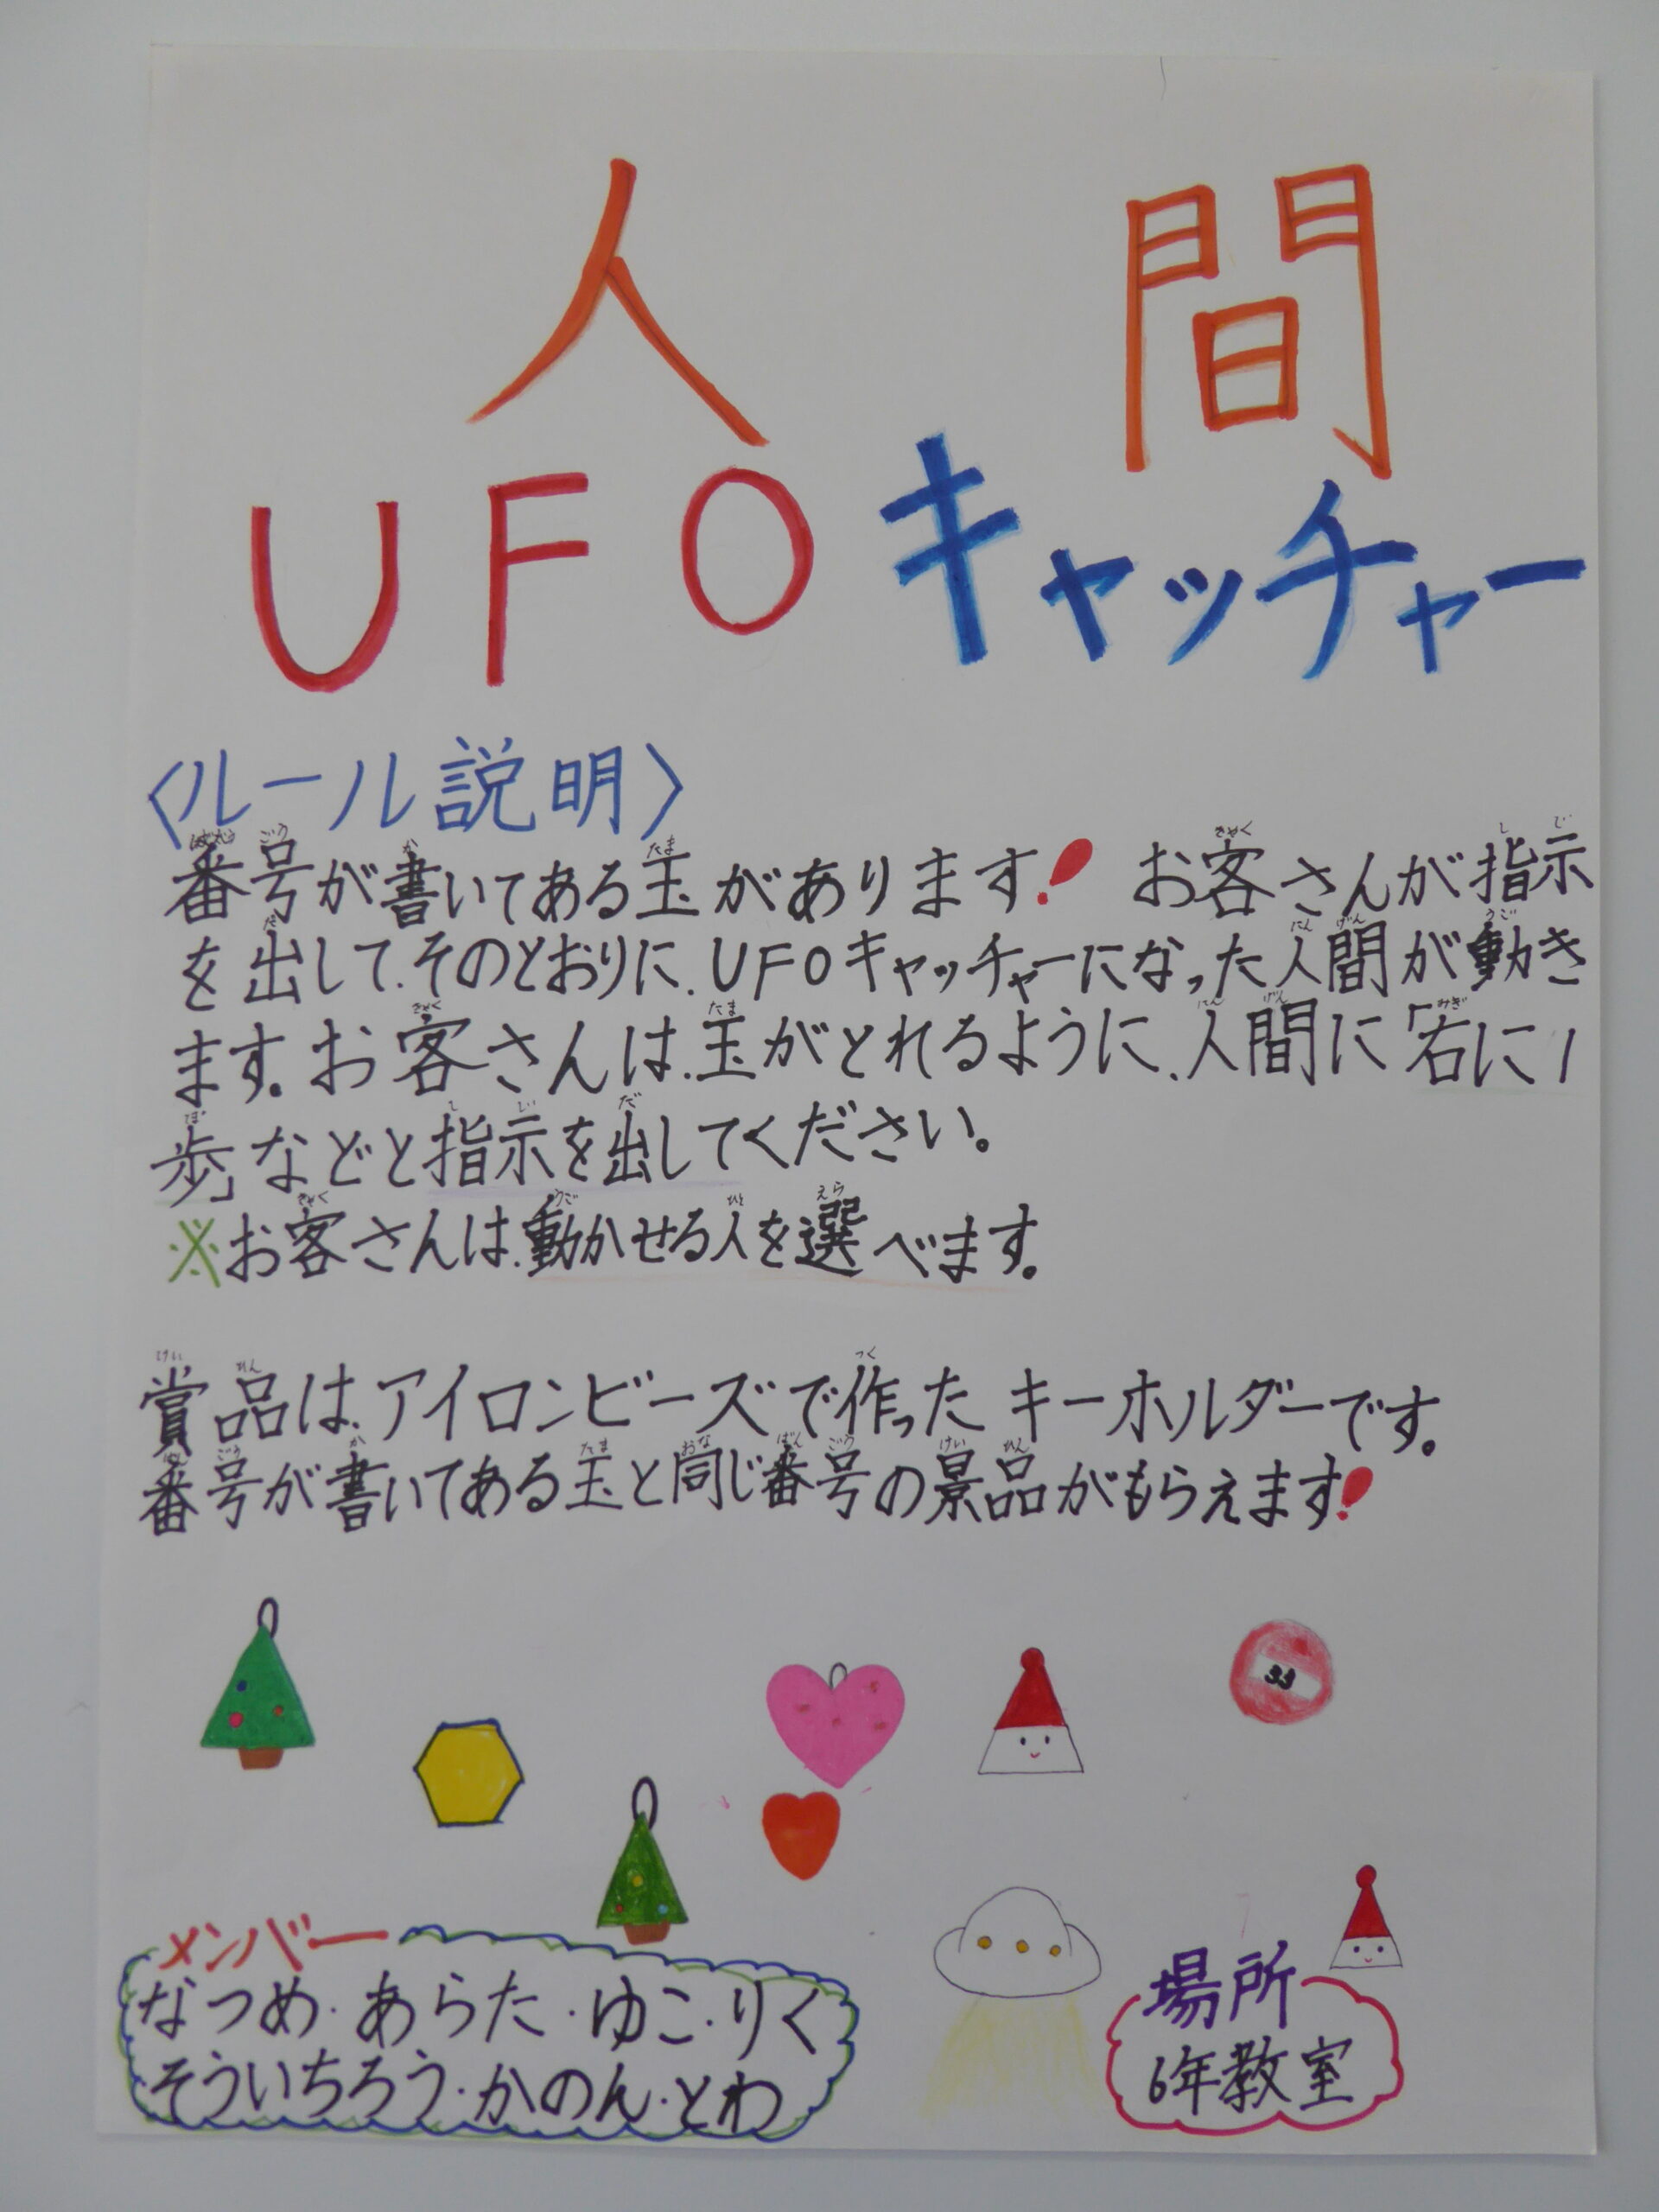 人間
UFOキャッチャー
〈ルール説明〉
番号が書いてある玉があります! お客さんが指示
を出して、そのとおりに、UFOキャッチャーになった人間が動き
ます。お客さんは、玉がとれるように、人間に「右に1
歩」などと指示を出してください。
※お客さんは、動かせる人を選べます。
賞品は、アイロンビーズで作ったキーホルダーです。
番号が書いてある玉と同じ番号の景品がもらえます!
メンバー
なつめ・あらた・ゆこ・りく
そういちろう・かのん・とわ
場所
6年教室